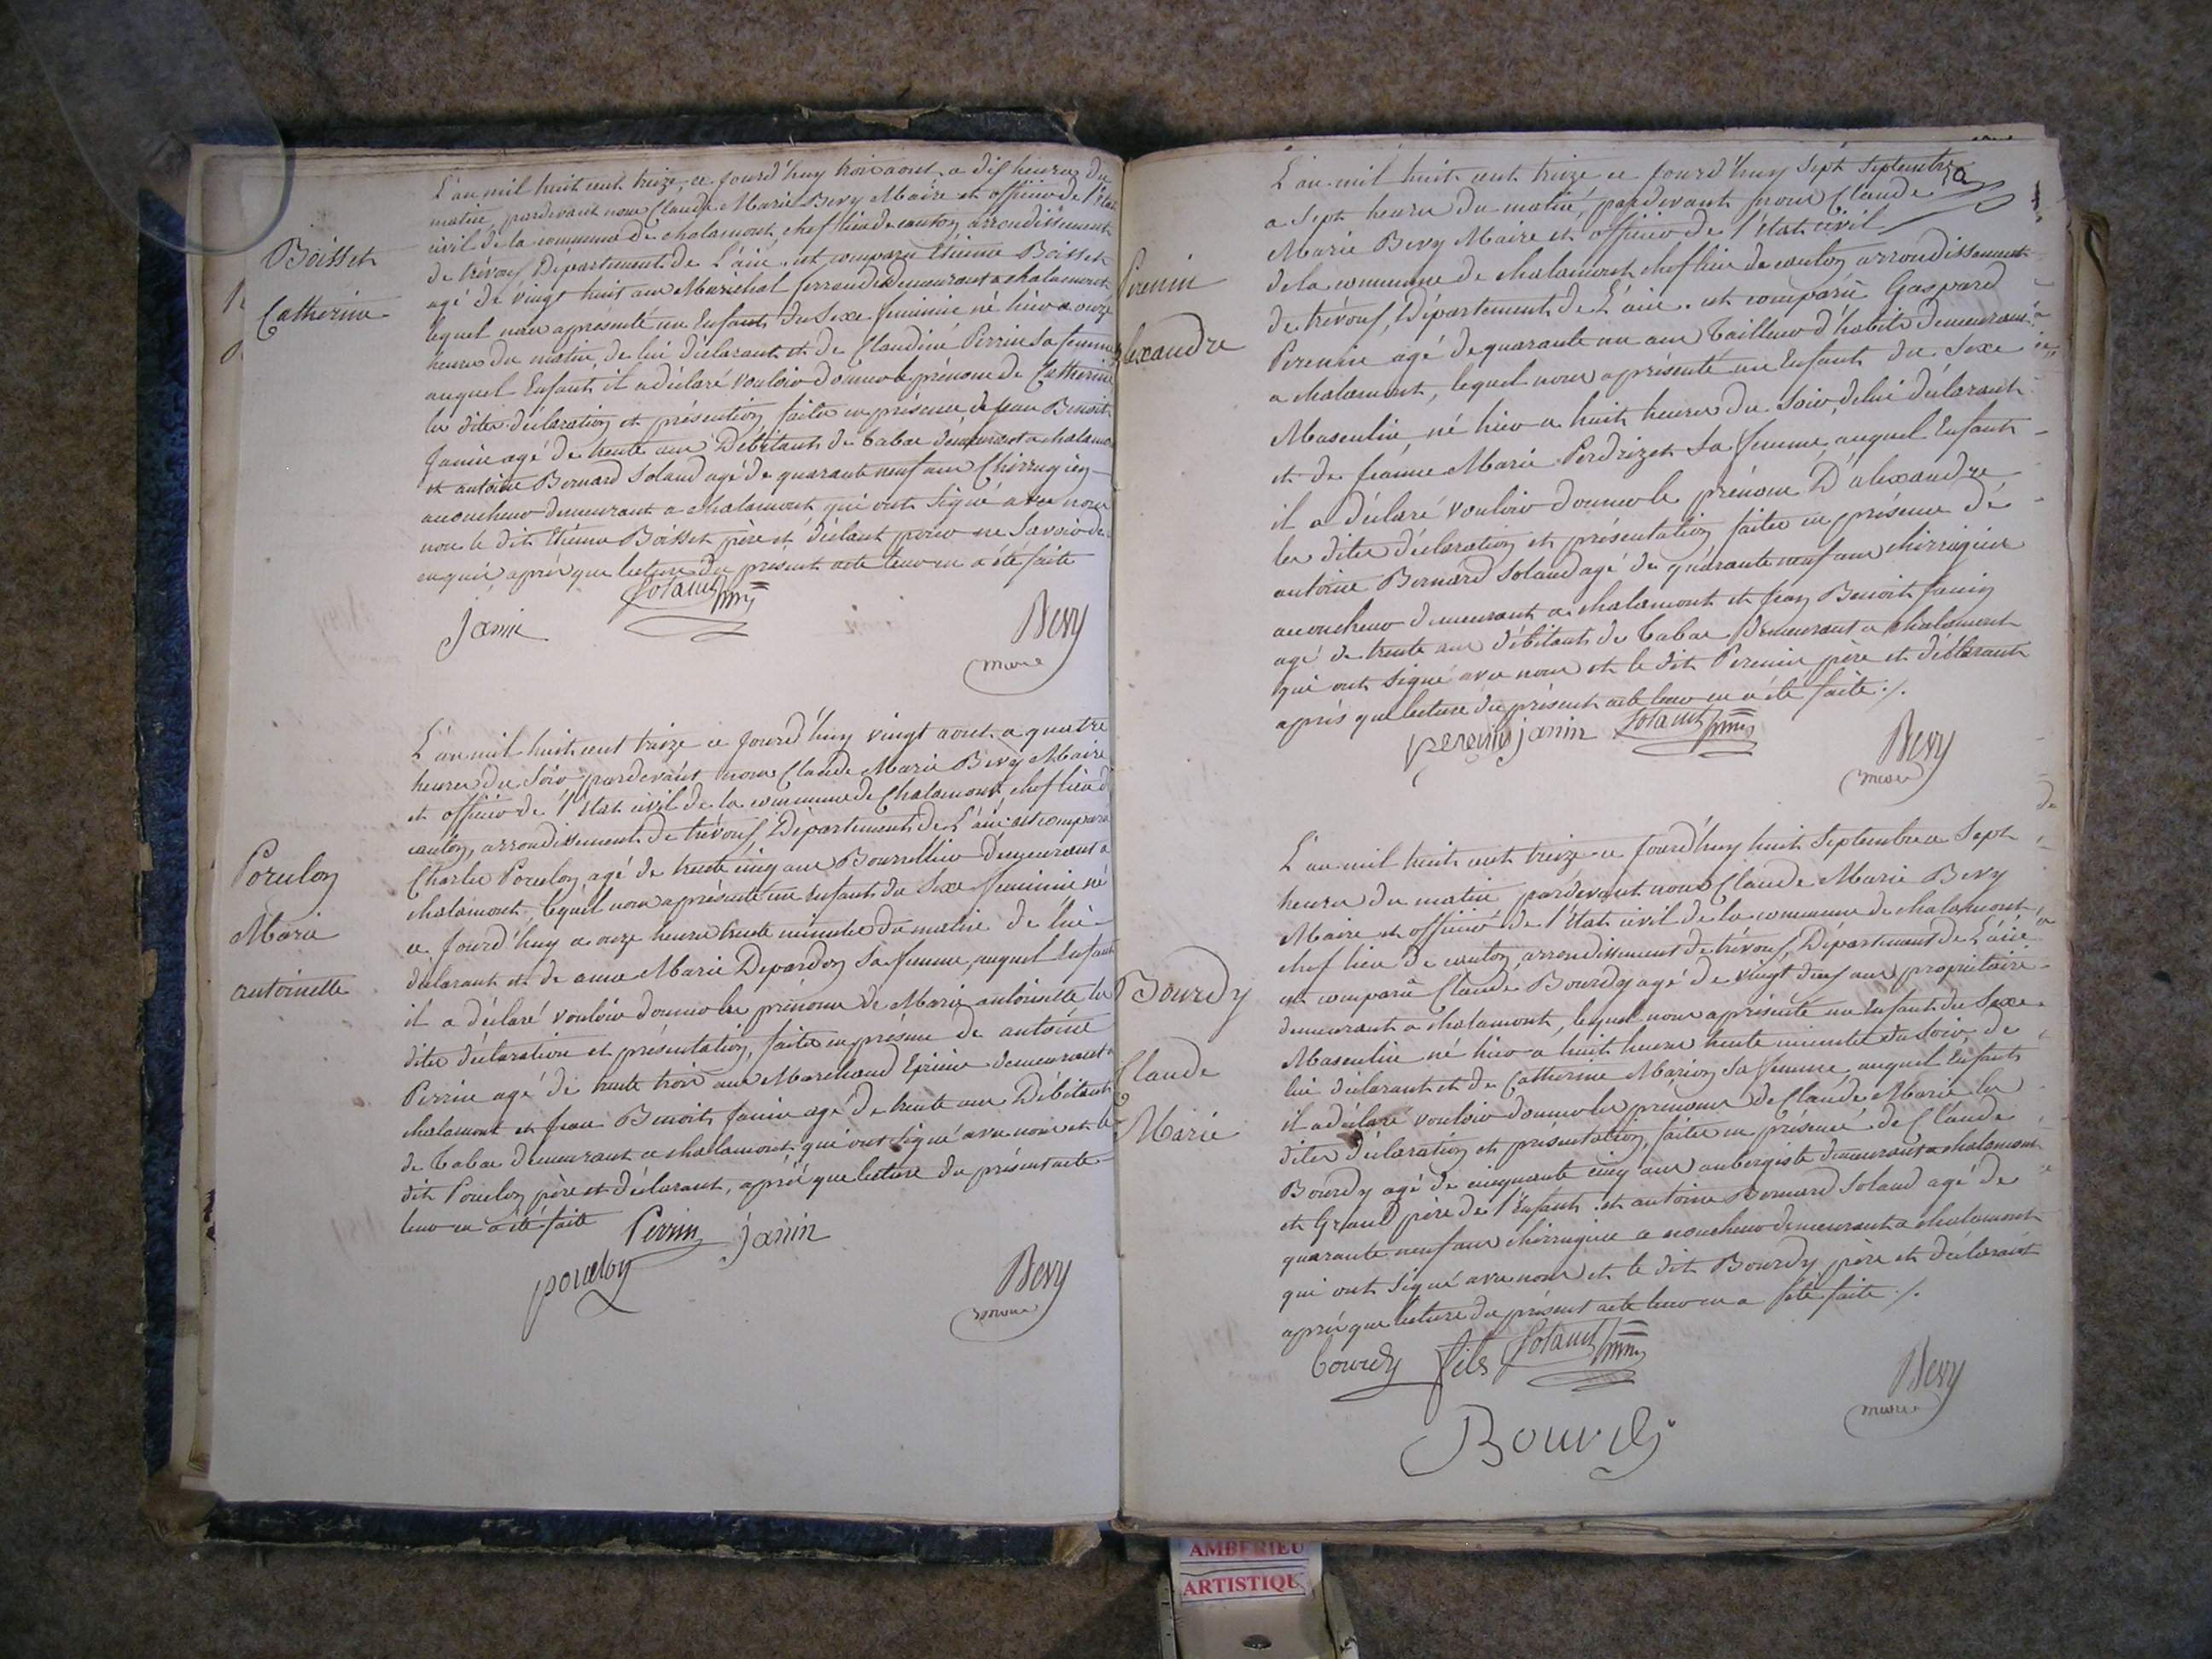 Boisset
Catherine
L'an mil huit cent treize, ce jourd'huy trois aout a dix heures du
matin, pardevant nous Claude Marie Bevy Maire et officier de l'Etat
civil de la commune de chalamont chef lieu de canton arrondissement
de trévoux Département de L'ain. est comparu Etienne Boisset
agé de vingt huit ans Maréchal ferrand demeurant a chalamont
lequel nous a présenté un Enfant du Sexe féminin né hier a onze
heures du matin, de lui déclarant et de Claudine Perrin sa femme
auquel Enfant il a déclaré vouloir donner le prénom de Catherine
les dites déclaration et présention faites en présence de jean Benoit
Janin agé de trente ans Débitant de tabac demeurant a chalamont
et antoine Bernard Soland agé de quarante neuf ans Chirrugien
accoucheur demeurant a chalamont qui ont signé avec nous
non le dit Etienne Boisset père et déclant pour ne savoir de
enquis, après que lecture du présent acte leur en a été faite
Janin Soland Bevy
maire
Poncelon
Marie
antoinette
L'an mil huit cent treize ce jourd'huy vingt aout a quatre
heures du soir pardevant nous Claude Marie Bevy Maire
et officier de l'Etat civil de la commune de Chalamont, chef lieu de
canton, arrondissement de trévoux Département de L'ain est comparu
Charles Poncelon agé de trente cinq ans Bourrellier demeurant a
chalamont lequel nous a présenté un enfant du Sexe féminin né
ce jourd'huy a onze heures trente minutes du matin de lui
déclarant et de anne Marie Depardon sa femme, auquel Enfant
il a déclaré vouloir donner les prénoms de Marie antoinette les
dites déclaration et présentation, faites en présence de antoine
Perrin agé de trente trois ans Marchand Epicier demeurant a
chalamont et jean Benoit Janin agé de trente ans Débitant
de tabac demeurant a chalamont qui ont signé avec nous et le
dit Poncelon père et déclarant, après que lecture du présent acte
leur en a été faite Perrin janin
poncelon Bevy
maire
Perenin
alexandre
L'an mil huit cent treize ce jourd'huy sept septembre
a sept heures du matin, pardevant nous Claude
Marie Bevy Maire et officier de l'état civil
de la commune de chalamont chef lieu de canton arrondissement
de trévoux, Département de L'ain. est comparu Gaspard
Perenin agé de quarante un ans Tailleur d'habits demeurant
a chalamont, lequel nous a présenté un Enfant du Sexe
Masculin né hier a huit heures du soir, de lui déclarant
et de jeanne Marie Perdrizet sa femme, auquel Enfant
il a déclaré vouloir donner le prénom D'alexandre
les dites déclaration et présentation faites en présence de
antoine Bernard Soland agé de quarante neuf ans chirrugien
accoucheur demeurant a chalamont et jean Benoit Janin
agé de trente ans débitant de tabac demeurant a chalamont
qui ont signé avec nous et le dit Perenin père et déclarant
après que lecture du présent acte leur en a été faite ./.
perenin janin Soland Bevy
maire
Bourdy
Claude
Marie
L'an mil huit cent treize ce jourd'huy huit Septembre a Sept
heures du matin pardevant nous Claude Marie Bevy
Maire et officier de l'état civil de la commune de chalamont
chef lieu de canton, arrondissement de trévoux, Département de L'ain
est comparu Claude Bourdy agé de vingt deux ans propriétaire
demeurant a chalamont, lequel nous a présenté un Enfant du Sexe
Masculin né hier a huit heures trente minutes du soir, de
lui déclarant et de Catherine Marion sa femme auquel Enfant
il a déclaré vouloir donner les prénoms de Claude Marie les
dites déclaration et présentation, faites en présence de Claude
Bourdy agé de cinquante cinq ans aubergiste demeurant a chalamont
et Grand père de l'Enfant. et antoine Bernard Soland agé de
quarante neuf ans chirrugien accoucheur demeurant a chalamont
qui ont signé avec nous et le dit Bourdy père et déclarant
après que lecture du présent acte leur en a été faite ./.
bourdy fils Soland Bevy
maire
Bourdy
AMBERIEU
ARTISTIQU